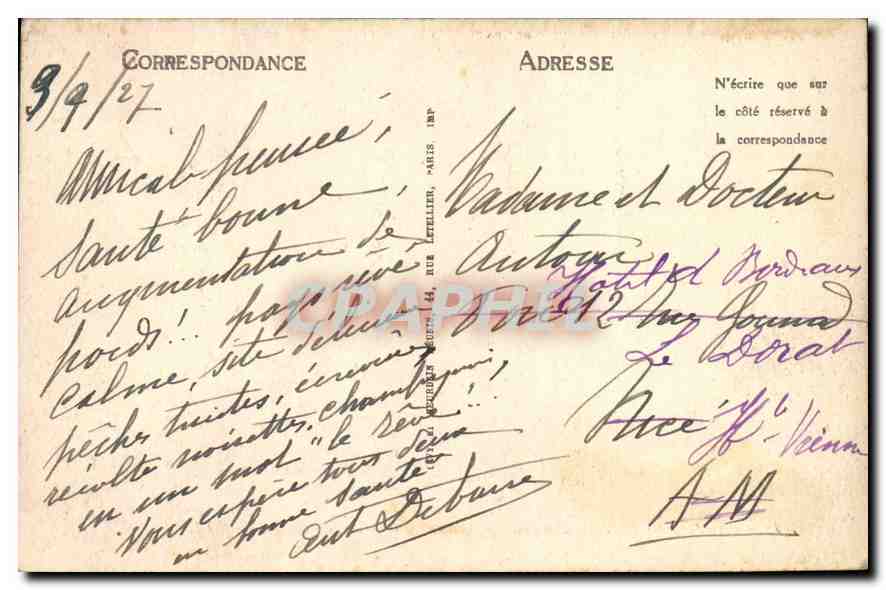 CORRESPONDANCE
3/9/27
amicale pensée,
Santé bonne,
augmentation de
poids!.. pays rêvé,
Calme, site délicieux
pêches truites, écrevisses,
récolte noisettes, champignons,
en un mot "le rêve!..
Vous espère tous deux
en bonne santé
ADRESSE
N'écrire que sur
le côté réservé à
la correspondance
Madame et Docteur
Antour
Hôtel d Bordeaux
12 Rue Gounod
Le Dorat
Nice
Hte-Vienne
A M
44, RUE LETELLIER, PARIS. IMP
CPAPHIL